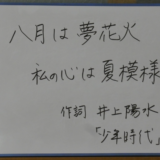 八月は 夢花火
私の心は 夏模様
作詞 井上陽水
「少年時代」